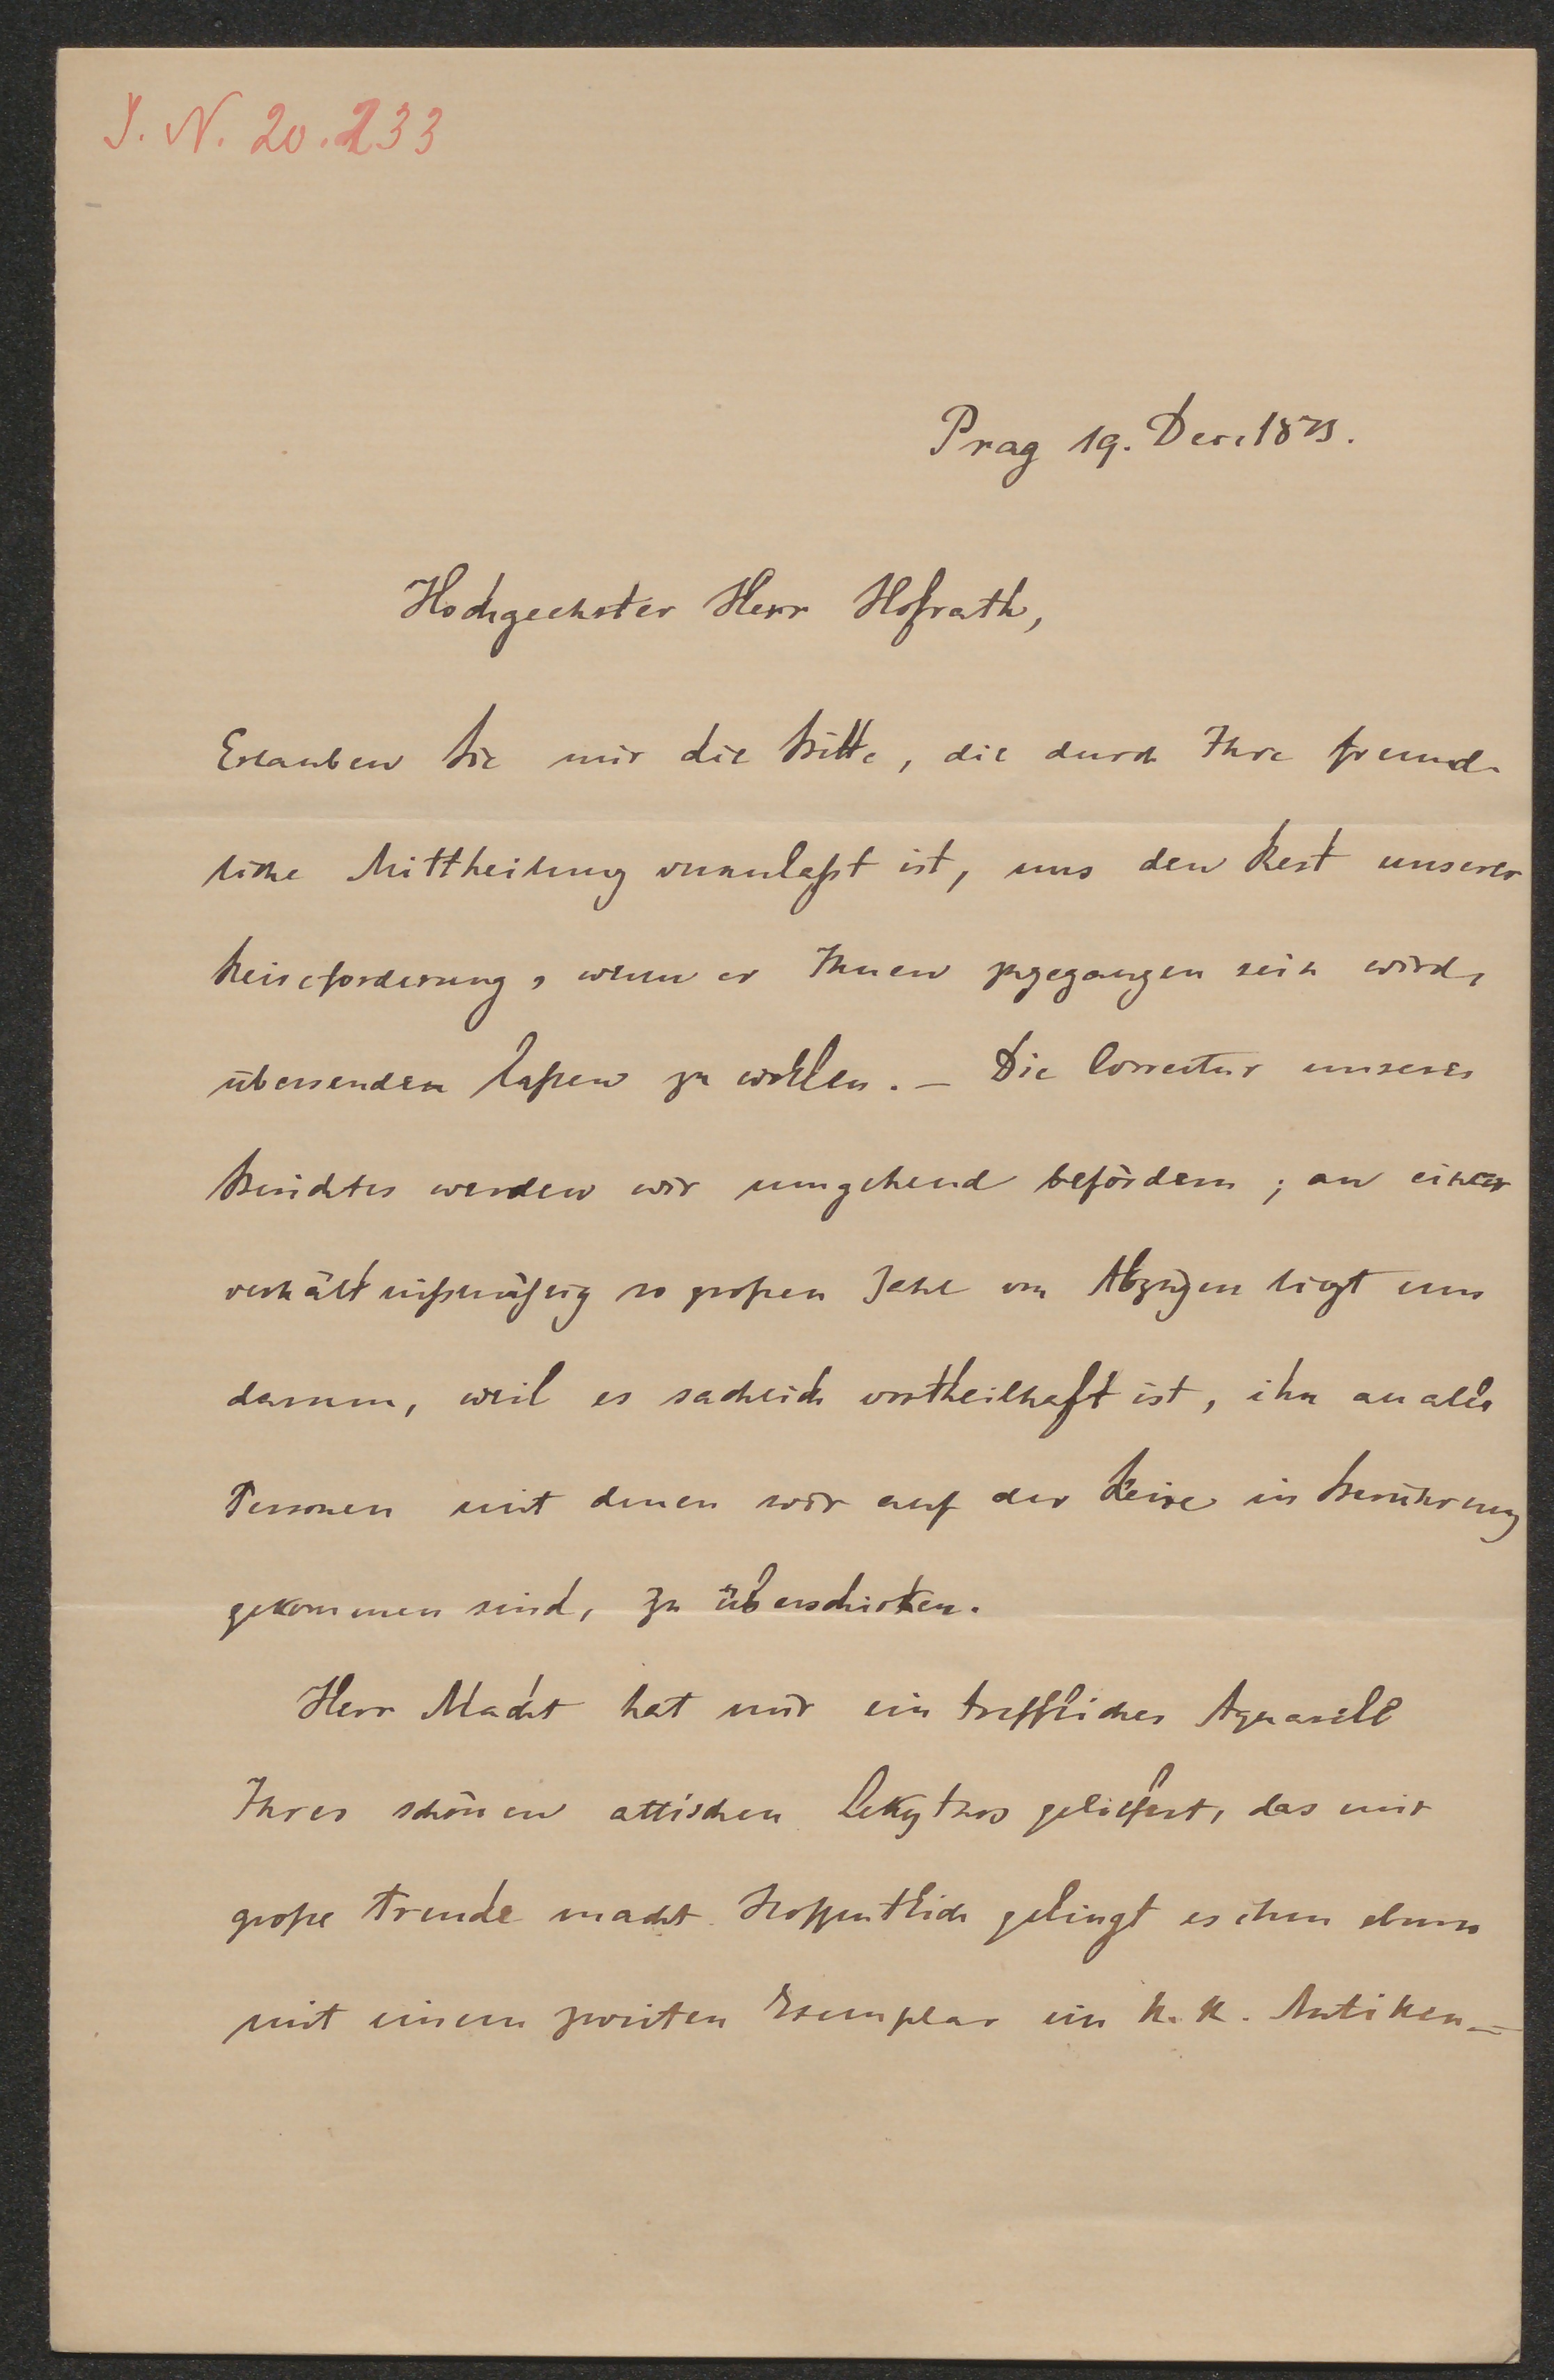 J. N. 20.233
Prag 19. Dec. 1873.
Hochgeehrter Herr Hofrath,
Erlauben Sie mir die Bitte, die durch Ihre freund-
liche Mittheilung veranlaßt ist, uns den Rest unserer
Reiseforderung, wenn er Ihnen zugegangen sein wird,
übersenden laßen zu wollen. – Die Correctur unseres
Berichtes werden wir umgehend befördern; an einer
verhältnißmäßig so großen Zahl von Abzügen liegt uns
darum, weil es sachlich vortheilhaft ist, ihn an alle
Personen mit denen wir auf der Reise in Berührung
gekommen sind, zu überschicken.
Herr Macht hat mir ein treffliches Aquarell
Ihres schönen attischen Lekythos geliefert, das mir
große Freude macht. Hoffentlich gelingt es ihm ebenso
mit einem zweiten Exemplar im k. k. Antiken-